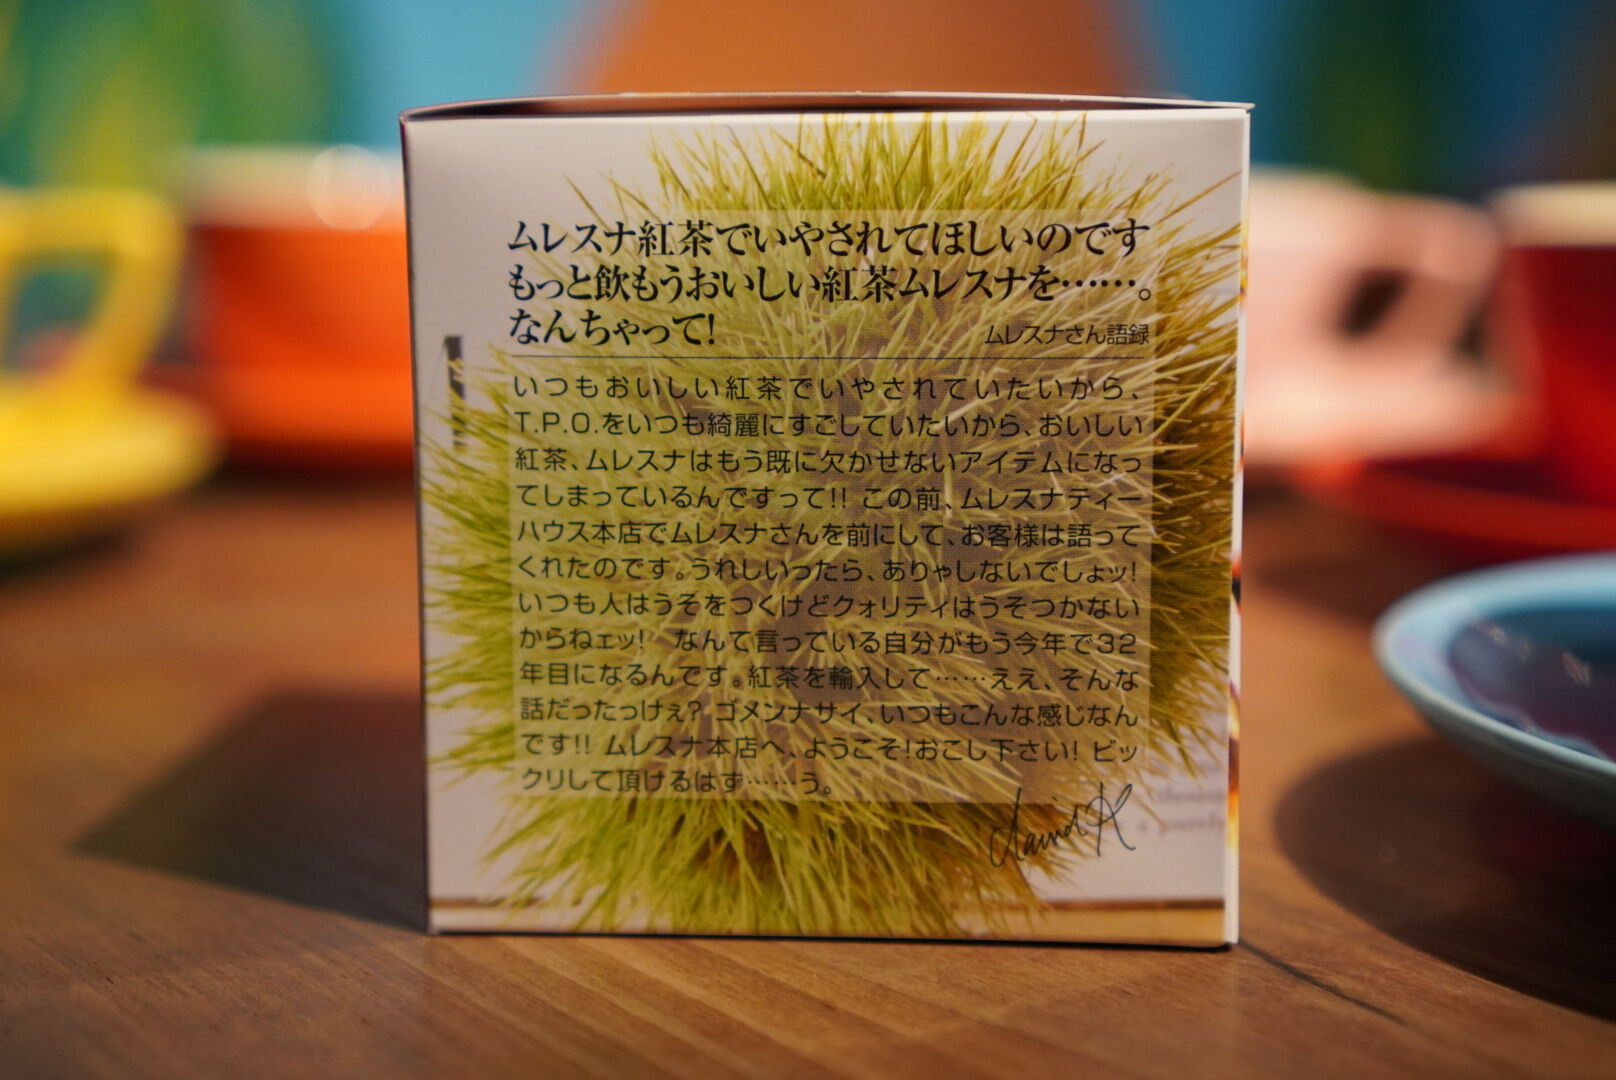 ムレスナ紅茶でいやされてほしいのです
もっと飲もうおいしい紅茶ムレスナを……。
なんちゃって!
ムレスナさん語録
いつもおいしい紅茶でいやされていたいから、
T.P.O.をいつも綺麗にすごしていたいから、おいしい
紅茶、ムレスナはもう既に欠かせないアイテムになっ
てしまっているんですって!! この前、ムレスナティー
ハウス本店でムレスナさんを前にして、お客様は語って
くれたのです。うれしいったら、ありゃしないでしょッ!
いつも人はうそをつくけどクォリティはうそつかない
からねェッ! なんて言っている自分がもう今年で32
年目になるんです。紅茶を輸入して……ええ、そんな
話だったっけぇ? ゴメンナサイ、いつもこんな感じなん
です!! ムレスナ本店へ、ようこそ!おこし下さい! ビッ
クリして頂けるはず……う。
David K